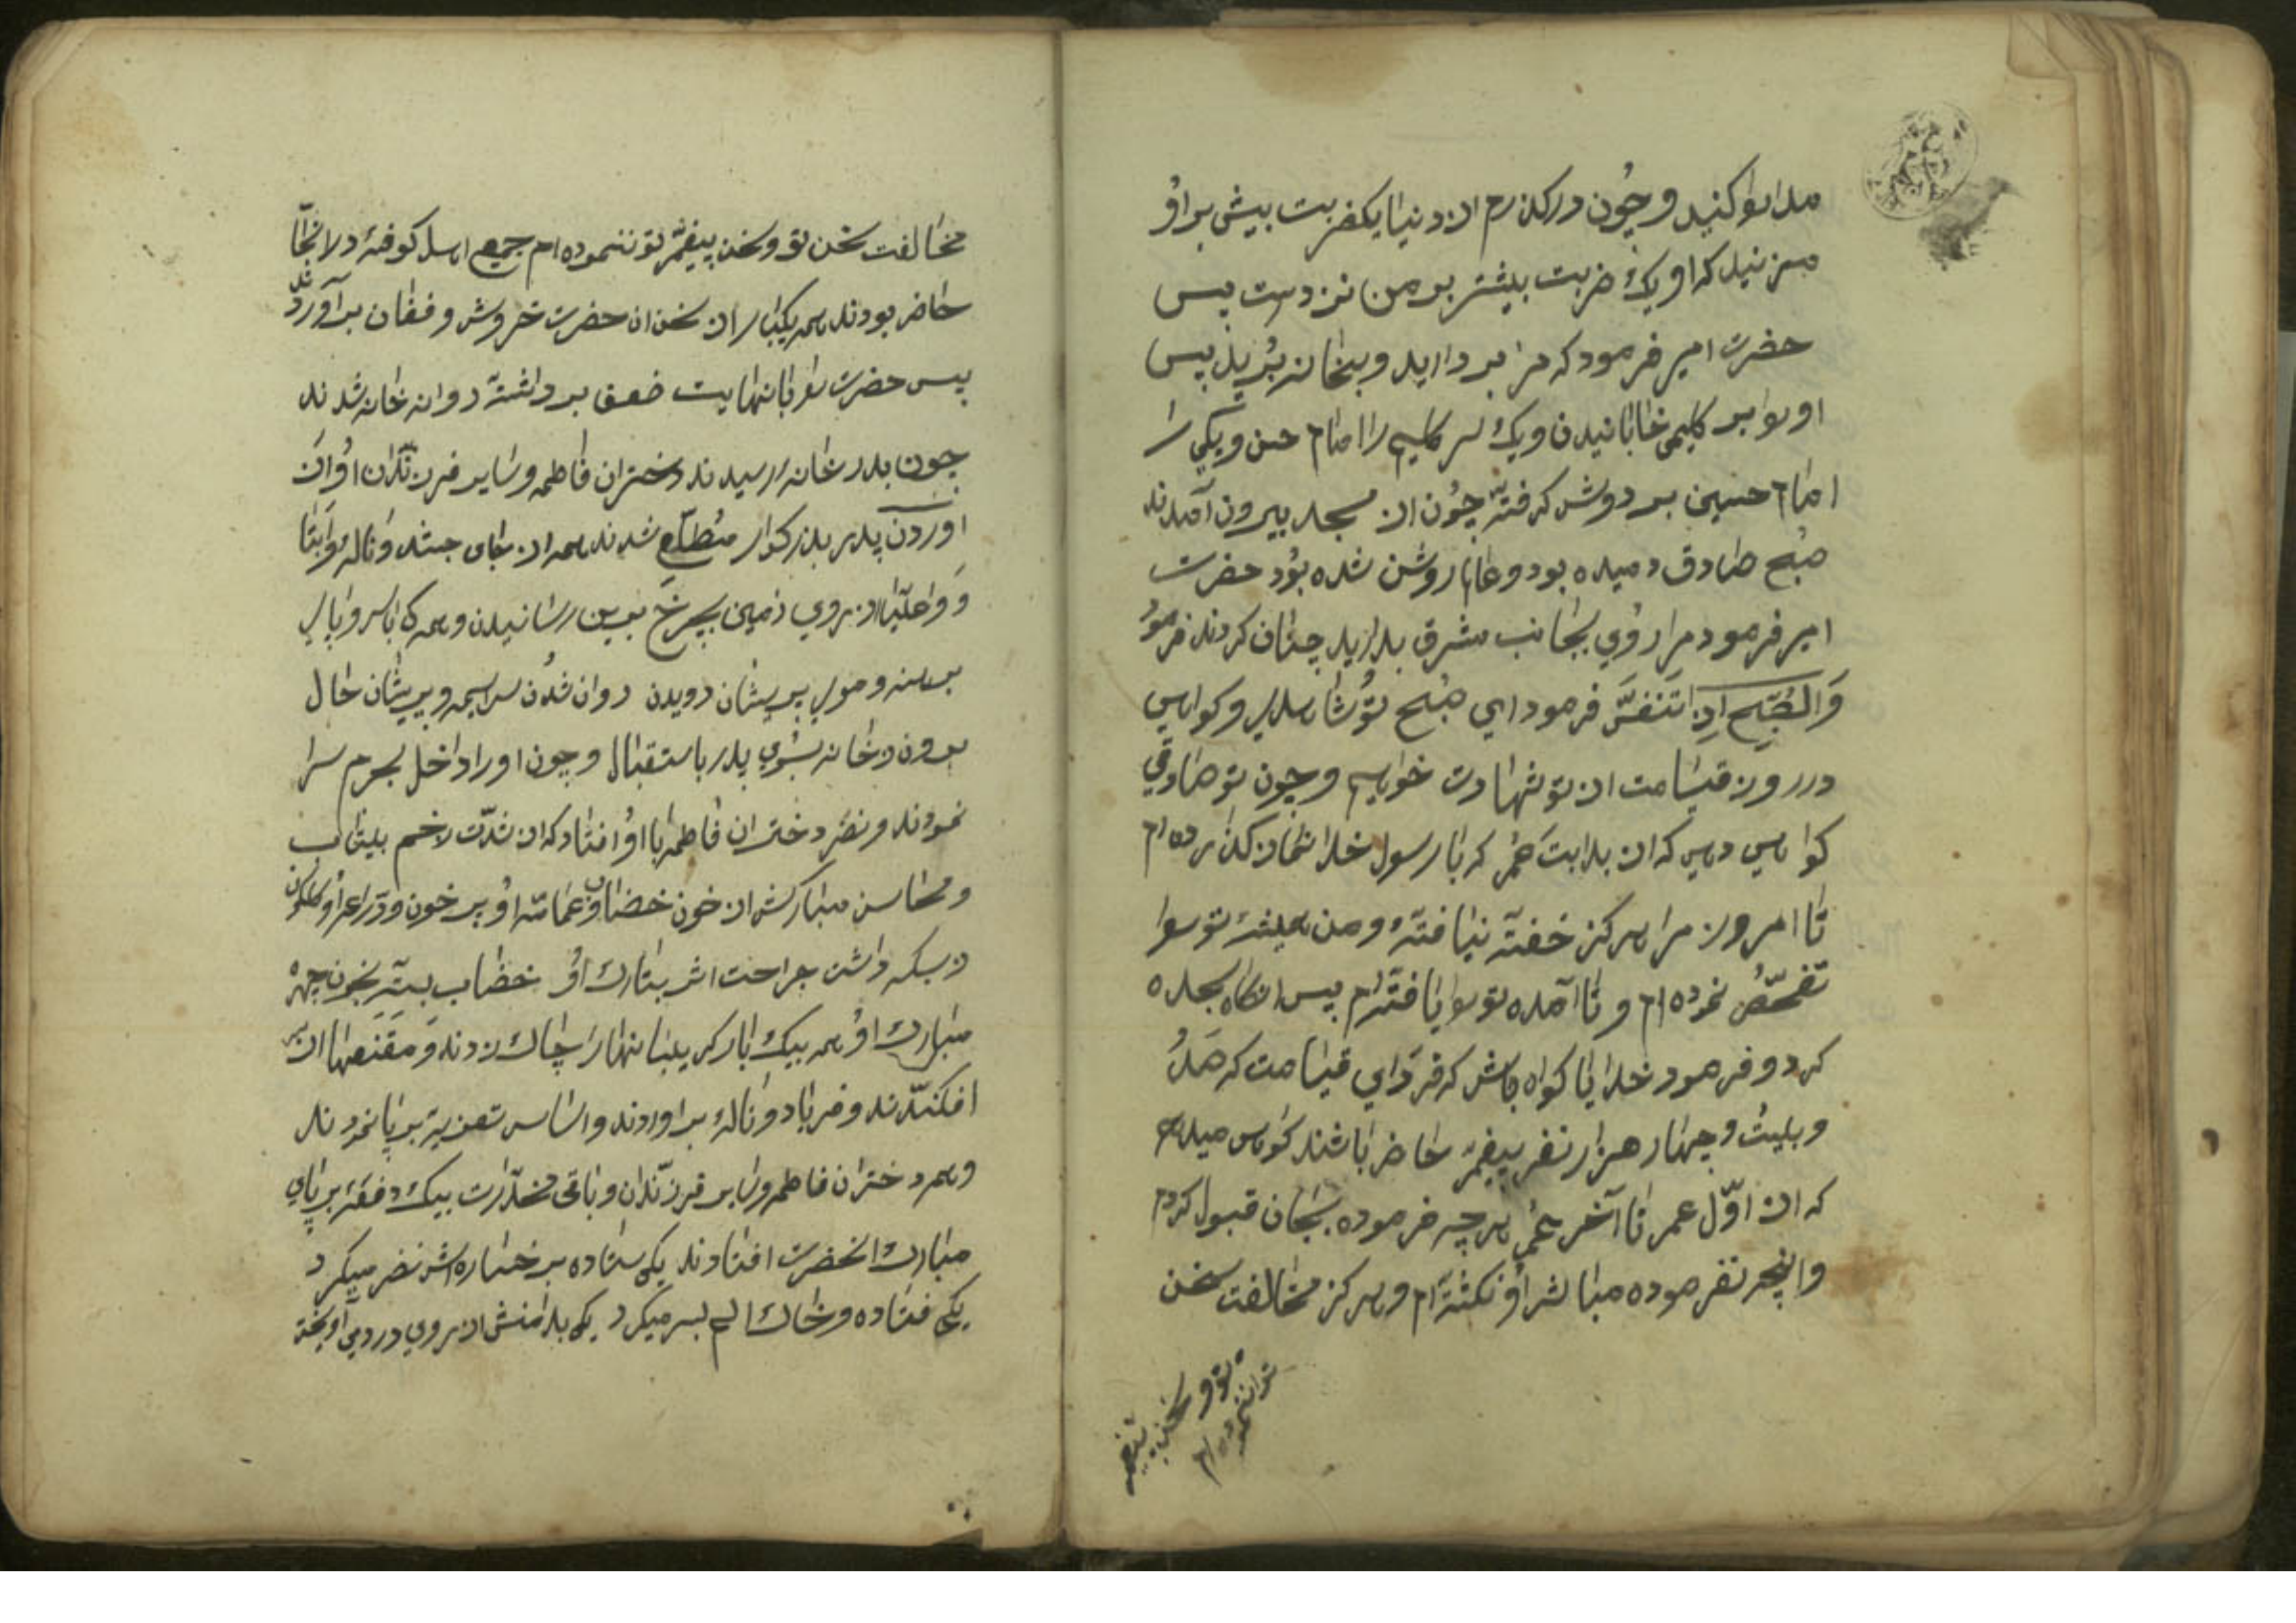 مدارا کنید و چون درگذرم از دنیا یکضربت بیش بر او
مزنید که او یک ضربت بیشتر بر من نزدست پس
حضرت امیر فرمود که مرا بر دارید و بخانه برید پس
او را بر کلیمی خابانیدن و یک سر کلیم را امام حسن و یکی را
امام حسین بر دوش کرفته چون از مسجد بیرون آمدند
صبح صادق دمیده بود و عالم روشن شده بود حضرت
امیر فرمود مرا روی بجانب مشرق بدارید چنان کردند فرمود
وَالصُّبْحِ اِذا تَنَفَّسَ فرمود ای صبح تو شاهدی و کواهی
در روز قیامت از تو شهادت خواهیم و چون تو صادقی
کواهی دهی که از بدایت عمر که با رسول خدا نماز کذارده ام
تا امروز مرا هرکز خفته نیافته و من همیشه تو را
تفحّص نموده ام و تا آمده تو را یافته ام پس انکاه سجده
کرد و فرمود خدایا کواه باش که فردای قیامت که صد
و بیست و چهار هزار نفر پیغمبر حاضر باشند کواهی میدهم
که از اوّل عمر تا آخر عمر هر چه فرموده بجان قبول کردم
و انچه نفرموده مباشر او نکشته ام و هرکز مخالفت سخن
تو و سخن پیغمبر
تو ننموده ام
مخالفت سخن تو و سخن پیغمبر تو ننموده ام جمیع اهل کوفه در انجا
حاضر بودند همه یکبار از سخن ان حضرت خروش و فغان بر آوردند
پس حضرت را با نهایت ضعف برداشته روانه خانه شدند
چون بدر خانه رسیدند دختران فاطمه و سایر فرزندان او از
آوردن پدر بزرکوار مطّلع شدند همه از جای جسته و ناله وا ابتا
و وا علیّا از روی زمین بچرخ برین رسانیدن و همه کی با سر و پای
برهنه و موی پریشان دویدن روان شدن سراسیمه و پریشان حال
بیرون خانه بسوی پدر باستقبال و چون او را داخل بحرم سرا
نمودند و نظر دختران فاطمه با او افتاد که از شدّت زخم بیتاب
و محاسن مبارکش از خون خضاب و عمامه او پر خون و دراعه او کلکون
ز بسکه داشت جراحت اثر بتارک او خضاب بسته بخون چهره
مبارک او همه بیک بار کریبانها را چاک زدند و مقنعها از سر
افکندند و فریاد و ناله بر اوردند و اساس تعزیه بر پا نمودند
و همه دختران فاطمه و سایر فرزندان و باقی مخدّرات بیک دفعه بر پای
مبارک انحضرت افتادند یکی ستاده بر خساره اش نظر میکرد
یکی فتاده و خاک الم بسر میکرد یکی بدامنش از روی درد می آویخت